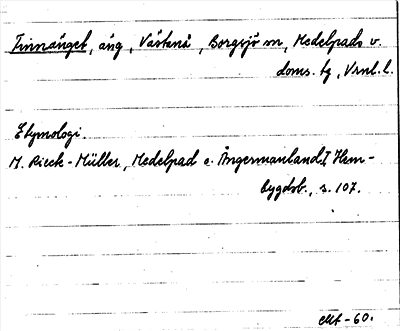 Finnänget, äng, Västanå, Borgsjö sn, Medelpads v.
doms. tg, Vrnl. l.
Etymologi.
M. Rieck-Müller, Medelpad o. Ångermanland I, Hem-
bygdsb., s. 107.
-60.